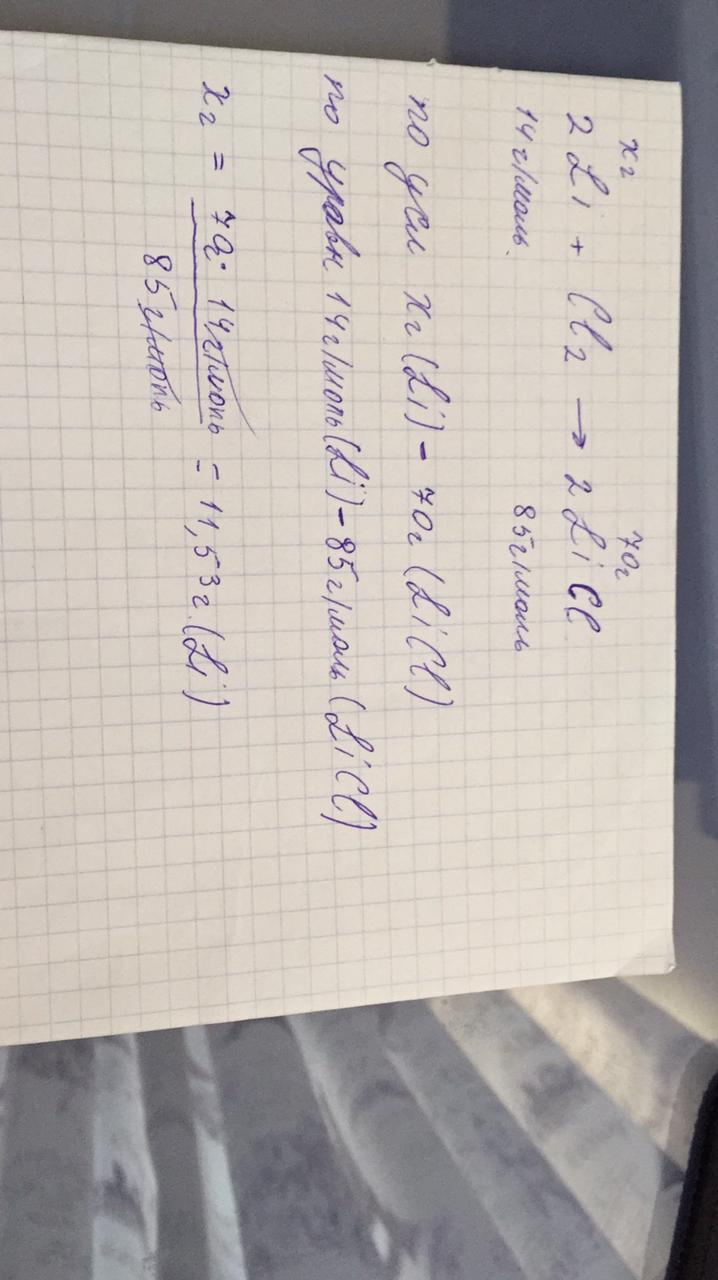 xг 70г
2Li + Cl₂ → 2LiCl
14г/моль. 85г/моль
по усл xг (Li) – 70г (LiCl)
по уравн 14г/моль (Li) – 85г/моль (LiCl)
xг = 70г · 14г/моль = 11,53г. (Li)
85г/моль